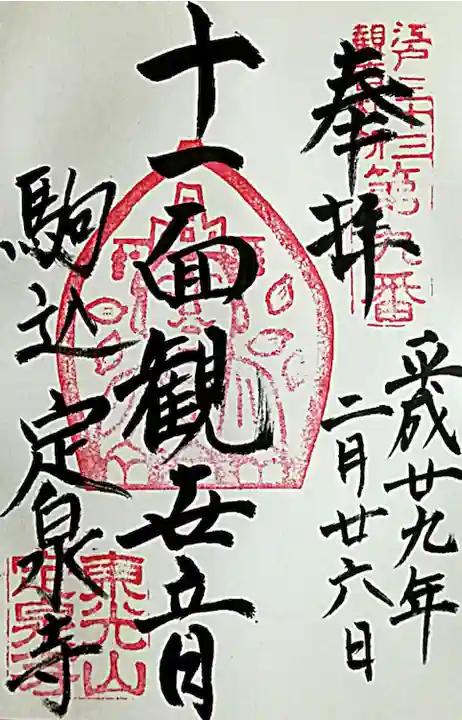 江戸三十三
観音札所第九番
奉拝
平成廿九年
二月廿六日
十一面観世音
駒込定泉寺
東光山
定泉寺